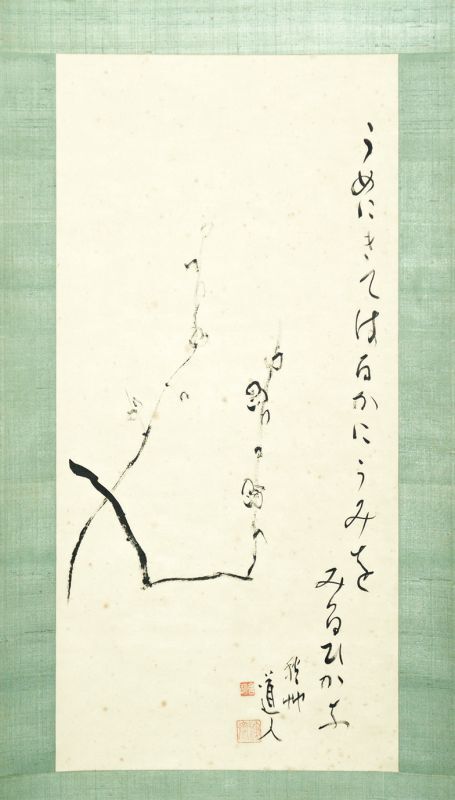 うめにきてはるかにうみを
みるひかな
道人